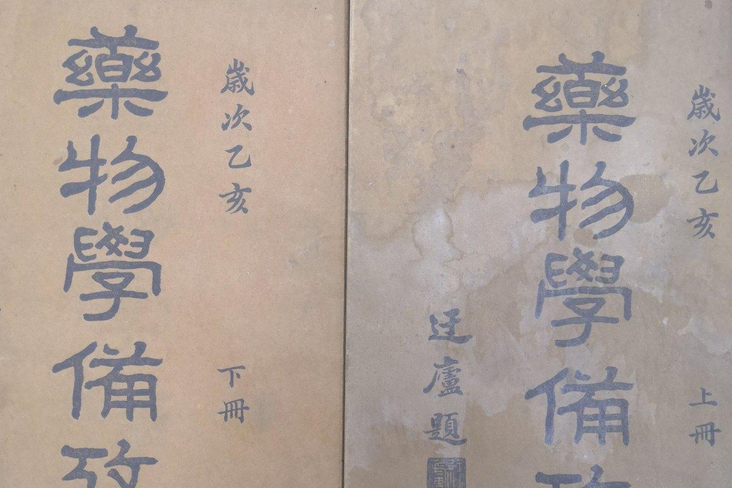 歲次乙亥
藥物學備攷
上冊
迋廬題
歲次乙亥
藥物學備攷
下冊